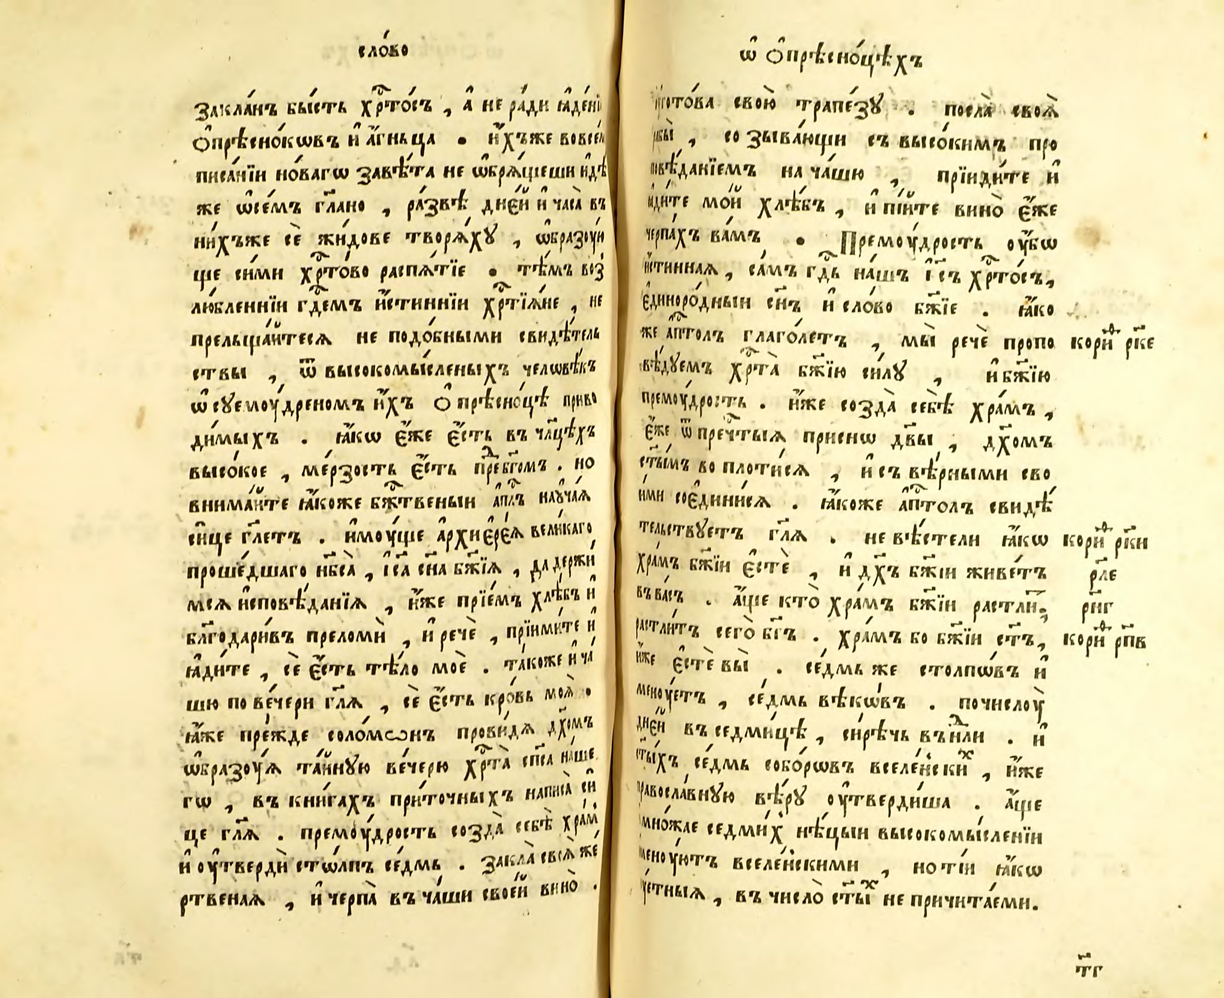 сло́во
закла́нъ бы́сть хрⷭ҇то́съ , а҆ не ра́ди ꙗ҆де́нїѧ
ѻ҆прѣсно́кѡвъ и҆ а҆́гньца . и҆́хъже вовсе́мъ
писа́нїи но́вагѡ завѣ́та не ѡ҆брѧ́щеши и҆дѣ́
же ѡ҆се́мъ гл҃ано , ра́звѣ дне́й и҆ часа̀ въ
ни́хъже сѐ жи́дове творѧ́хꙋ , ѡ҆бразꙋ́ю
ще си́ми хрⷭ҇то́во распѧ́тїе . тѣ́мъ воз̾
лю́бленнїи гдⷭ҇емъ и҆́стиннїи хрⷭ҇тїѧ́не , не
прельща́йтесѧ не подо́бными свидѣ́тель
ствы , ѿ высокомы́сленыхъ человѣ́къ
ѡ҆ сꙋемꙋ́дреномъ и҆́хъ ѻ҆прѣсно́цѣ приво
ди́мыхъ . ꙗ҆́кѡ є҆́же є҆́сть въ чл҃цѣхъ
высо́кое , ме́рзость є҆́сть преⷣ бг҃омъ . но
внима́йте ꙗ҆́коже бжⷭ҇твеныи а҆пⷭ҇лъ наꙋча́ѧ
си́це гл҃етъ . и҆мꙋ́ще а҆рхїере́ѧ вели́каго
проше́дшаго нб҃са̀ , і҆с҃а сн҃а бж҃їѧ , да держи́
мсѧ и҆сповѣ́данїѧ , и҆́же прїе́мъ хлѣ́бъ и҆
бл҃годари́въ преломѝ , и҆ речѐ , прїими́те и҆
ꙗ҆ди́те , сѐ є҆́сть тѣ́ло моѐ . та́коже и҆ ча́
шю по ве́чери гл҃ѧ , сѐ є҆́сть кро́вь моѧ̀ .
ꙗ҆́же пре́жде соломѡ́нъ прови́дѧ дх҃омъ
ѡ҆бразꙋ́ѧ та́йнꙋю ве́черю хрⷭ҇та̀ сп҃са на́ше
гѡ , въ кни́гахъ при́точныхъ написа̀ си́
це гл҃ѧ . премꙋ́дрость созда̀ себѣ̀ хра́мъ
и҆ ᲂу҆твердѝ стѡлпъ се́дмь . закла̀ своѧ̀ же́
ртвеная , и҆ черпа̀ въ ча́ши свое́й вино̀ .
ѡ҆ ѻ҆прѣсно́цѣхъ
ᲂу҆гото́ва свою̀ трапе́зꙋ . посла̀ своѧ̀
рабы̀ , со зыва́ющи съ высо́кимъ про
повѣ́данїемъ на ча́шю , прїиди́те и҆
ꙗ҆ди́те мо́й хлѣ́бъ , и҆ пі́йте вино̀ є҆́же
черпа́хъ ва́мъ . Премꙋ́дрость ᲂу҆́бѡ
и҆́стинная , са́мъ гдⷭ҇ь на́шъ і҆с҃ъ хрⷭ҇то́съ ,
є҆диноро́дныи сн҃ъ и҆ сло́во бж҃їе . ꙗ҆́ко
же а҆пⷭ҇толъ глаго́летъ , мы̀ речѐ пропо
вѣ́дꙋемъ хрⷭ҇та̀ бж҃їю си́лꙋ , и҆ бж҃їю
премꙋ́дрость . и҆́же созда̀ себѣ̀ хра́мъ ,
є҆́же ѿ преч҃тыѧ при́снѡ дв҃ы , дх҃омъ
ст҃ымъ во плоти́сѧ , и҆ съ вѣ́рными сво
и́ми соедини́сѧ . ꙗ҆́коже а҆пⷭ҇толъ свидѣ́
тельствꙋетъ гл҃ѧ . не вѣ́стели ꙗ҆́кѡ
хра́мъ бж҃їи є҆стѐ , и҆ дх҃ъ бж҃їи живе́тъ
въ ва́съ . а҆́ще кто̀ хра́мъ бж҃їи растли́тъ,
растли́тъ сего̀ бг҃ъ . хра́мъ бо бж҃їи ст҃ъ ,
и҆́же є҆стѐ вы̀ . се́дмь же столпѡ́въ и҆
менꙋ́етъ , се́дмь вѣ́кѡвъ . по числꙋ̀
дне́й въ седми́цѣ , си́рѣчь въ нⷣли . и҆
ст҃ыхъ се́дмь собо́рѡвъ вселе́нскиⷯ , и҆́же
правосла́внꙋю вѣ́рꙋ ᲂу҆тверди́ша . а҆́ще
мно́жае седми́хъ нѣ́цыи высокомы́сленїи
и҆менꙋ́ютъ вселе́нскими , но ті́и ꙗ҆́кѡ
въ число̀ ст҃ыⷯ не причита́еми .
кори́нⷴ҇ рк҃е
кори́нⷴ҇ рк҃и
рл҃е
рн҃г
кори́нⷴ҇ рп҃в
т҃г